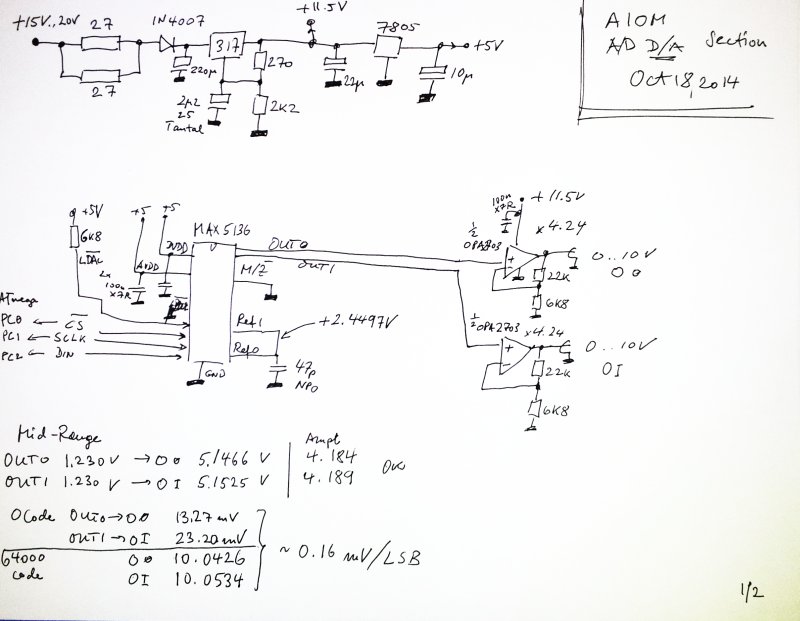 +15V..20V
27
27
1N4007
317
220µ
2µ2
25
Tantal
270
2K2
+11.5V
22µ
7805
+5V
10µ
AIOM
A/D D/A Section
Oct 18, 2014
+5V
6K8
LDAC
+5
+5
DVDD
AVDD
2x
100n
X7R
MAX5136
OUT0
OUT1
M/Z
Ref1
Ref0
+2.4497V
47p
NPO
GND
ATmega
PC0 CS
PC1 SCLK
PC2 DIN
100n
X7R
+11.5V
x4.24
1/2
OPA2703
+
-
22K
6K8
0..10V
O0
1/2
OPA2703
x4.24
+
-
22K
6K8
0..10V
O1
Mid-Range
Ampl
OUT0 1.230V → O0 5.1466 V 4.184
OUT1 1.230V → O1 5.1525 V 4.189
OK
0Code OUT0 → O0 13.27mV
OUT1 → O1 23.20mV
~ 0.16 mV/LSB
64000 O0 10.0426
code O1 10.0534
1/2